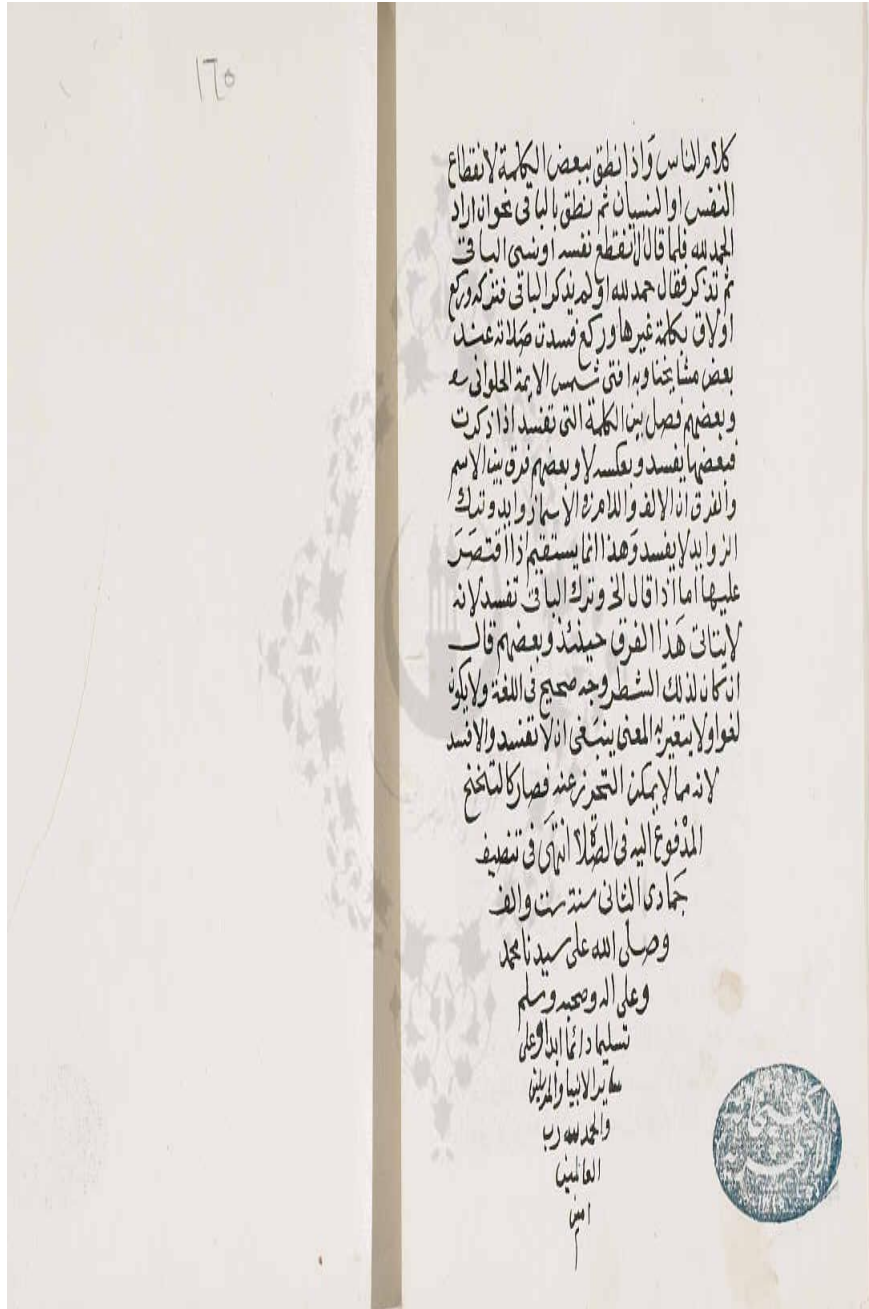 ١٦٥
كلام الناس وَاذا نطق ببعض الكلمة لانقطاع
النفس او النسيان ثم نطق بالباقى نحو ان اراد
الحمد لله فلما قال ال انقطع نفسه او نسى الباقى
ثم تذكر فقال حمد لله او لم يذكر الباقى فتركه وركع
او لاق بكلمة غيرها وركع فسدت صَلاته عند
بعض مشايخنا وبه افتى شمس الايمة الحلوانى
وبعضهم فصل بين الكلمة التى تفسد اذا ذكرت
فبعضها يفسد وبعكسه لا وبعضهم فرق بين الاسم
والفرق ان الالف واللام فى الاسماء زوايد وترك
الزوايد لا يفسد وَهذا انما يستقيم اذا اقتصَرَ
عليها اما اذا قال الخ وترك الباقى تفسد لانه
لا يتاتى هَذا الفرق حينئذ وبعضهم قال
ان كان لذلك الشطر وجه صحيح فى اللغة ولا يكون
لغوا ولا يتغير به المعنى ينبَغى ان لا تفسد والا فسد
لانه مما لا يمكن التحرز عنه فصار كالتنحنح
المدْفوع اليه فى الصّلاة انتهَى فى تنصيف
جَمادى الثانى سنة ست والف
وصلى الله على سيدنا محمد
وعلى اله وصحبه وسلم
تسليما دائما ابدا وعلى
ساير الانبيا والمرسلين
والحمد لله رب
العالمين
امين
م